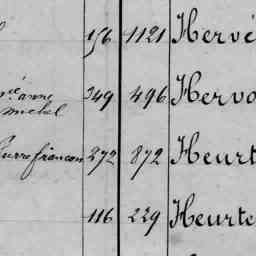 156 1121 Hervé
ne anne 349 496 Hervo
michel
Pierre francon 272 872 Heurt
116 229 Heurte